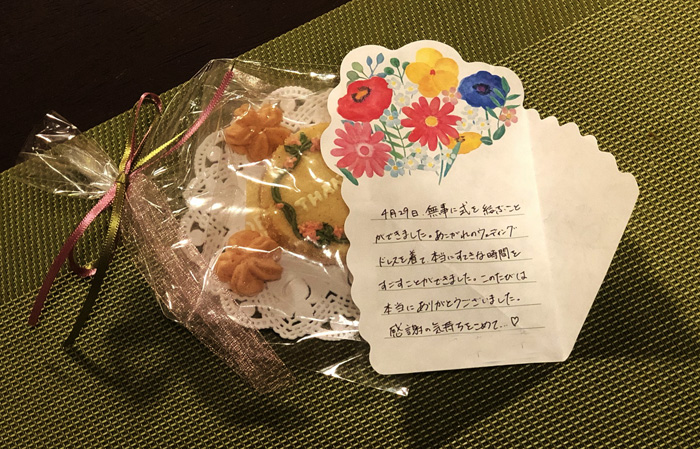 THA
4月29日 無事に式を 結ぶこと
ができました。あこがれのウェディング
ドレスを着て 本当にすてきな時間を
すごすことができました。このたびは
本当にありがとうございました。
感謝の気持ちをこめて…♡